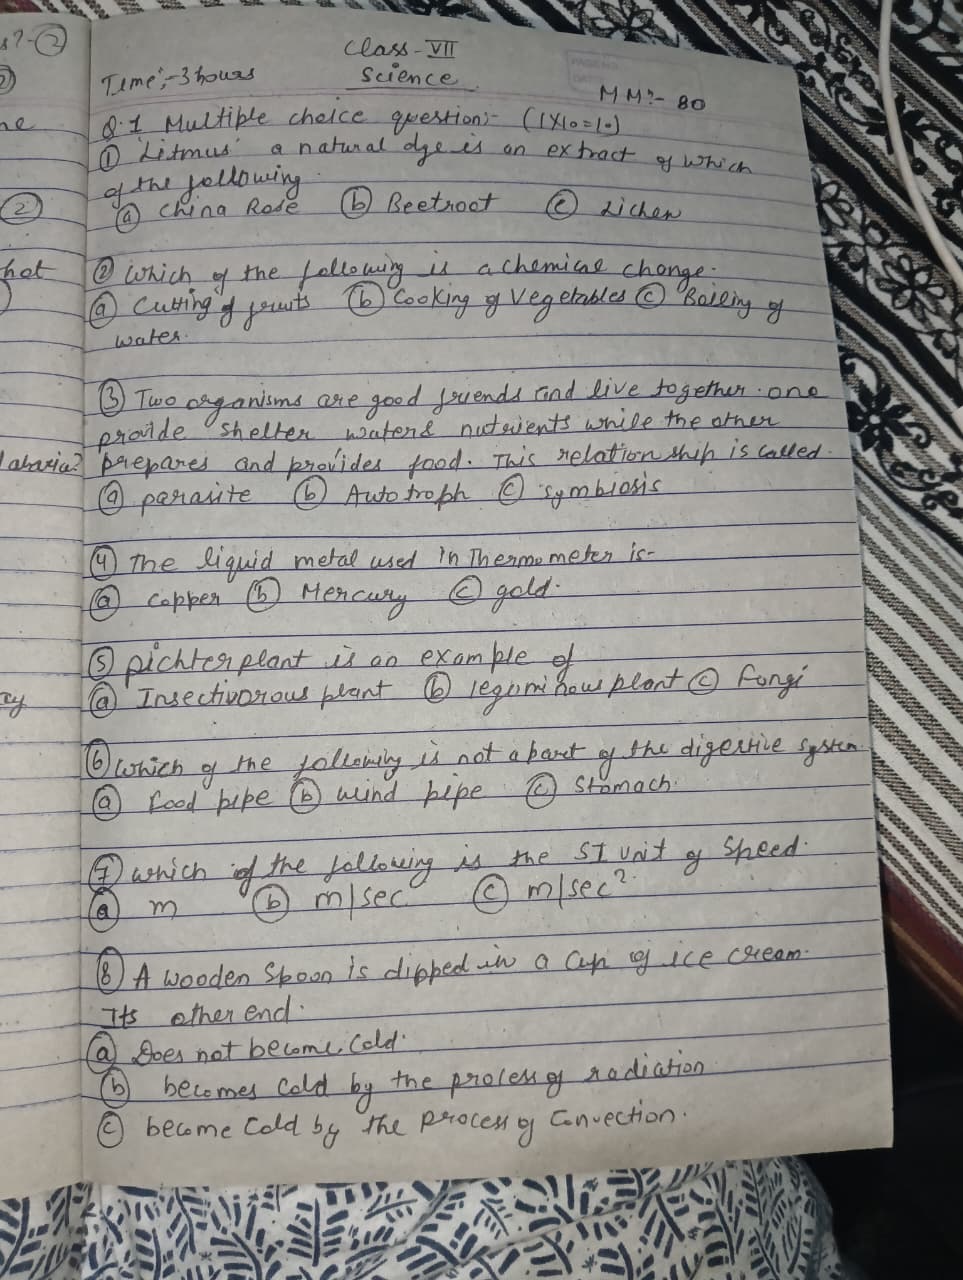 s? - ②
he
②
hot
labaria?
Class - VII
Time:- 3 hours Science MM:- 80
Q.1 Multiple choice question:- (1X10=10)
① 'Litmus' a natural dye is an extract of which
of the following.
ⓐ China Rose ⓑ Beetroot ⓒ Lichen
② Which of the following is a chemical change.
ⓐ Cutting of fruits ⓑ Cooking of Vegetables ⓒ Boiling of
water.
③ Two organisms are good friends and live together. one
provide shelter water & nutrients while the other
prepares and provides food. This relation ship is called.
ⓐ parasite ⓑ Autotroph ⓒ symbiosis
④ The liquid metal used in Thermometer is-
ⓐ copper ⓑ Mercury ⓒ gold.
⑤ pichter plant is an example of
ⓐ Insectivorous plant ⓑ leguminous plant ⓒ fungi
⑥ which of the following is not a part of the digestive system
ⓐ food pipe ⓑ wind pipe ⓒ Stomach.
⑦ which of the following is the SI unit of speed.
ⓐ m ⓑ m/sec ⓒ m/sec².
⑧ A wooden spoon is dipped in a cup of ice cream.
Its other end.
ⓐ Does not become cold.
ⓑ becomes cold by the process of radiation
ⓒ become cold by the process of convection.